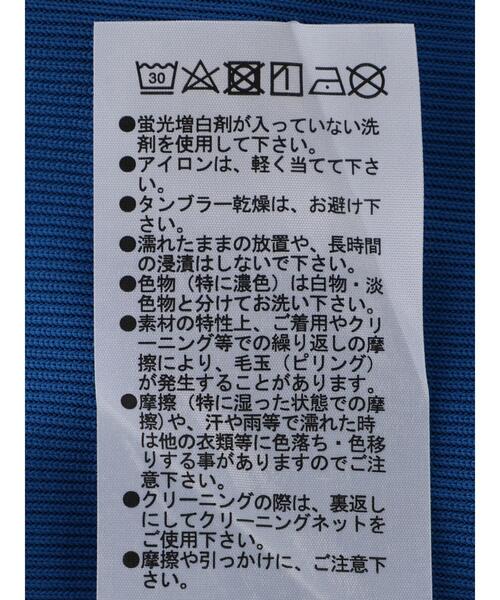 30
●蛍光増白剤が入っていない洗
剤を使用して下さい。
●アイロンは、軽く当てて下さ
い。
●タンブラー乾燥は、お避け下
さい。
●濡れたままの放置や、長時間
の浸漬はしないで下さい。
●色物（特に濃色）は白物・淡
色物と分けてお洗い下さい。
●素材の特性上、ご着用やクリ
ーニング等での繰り返しの摩
擦により、毛玉（ピリング）
が発生することがあります。
●摩擦（特に湿った状態での摩
擦)や、汗や雨等で濡れた時
は他の衣類等に色落ち・色移
りする事がありますのでご注
意下さい。
●クリーニングの際は、裏返し
にしてクリーニングネットを
ご使用下さい。
●摩擦や引っかけに、ご注意下
さい。